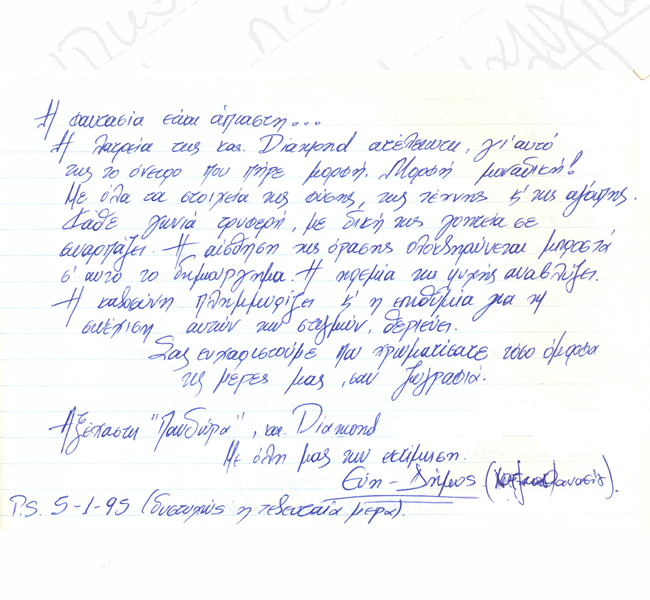 Η φαντασία είναι άπιαστη...
Η λατρεία της κας. Diamond ατέλειωτη, γι' αυτό
της το όνειρο που πήρε μορφή. Μορφή μοναδική!
Με όλα τα στοιχεία της φύσης, της τέχνης κ' της αγάπης.
Κάθε γωνιά τρυφερή, με δική της γοητεία σε
συναρπάζει. Η αίσθηση της όρασης ολοκληρώνεται μπροστά
σ' αυτό το δημιούργημα. Η ηρεμία της ψυχής αναβλύζει.
Η καλωσύνη πλημμυρίζει κ' η επιθυμία για τη
συνέχιση αυτών των στιγμών, θεριεύει.
Σας ευχαριστούμε που χρωματίσατε τόσο όμορφα
τις μέρες μας, σαν ζωγραφιά.
Αξέχαστη "Πανδώρα", κα. Diamond
Με όλη μας την εκτίμηση.
Εύη - Δήμος
P.S. 5-1-95 (δυστυχώς η τελευταία μέρα).